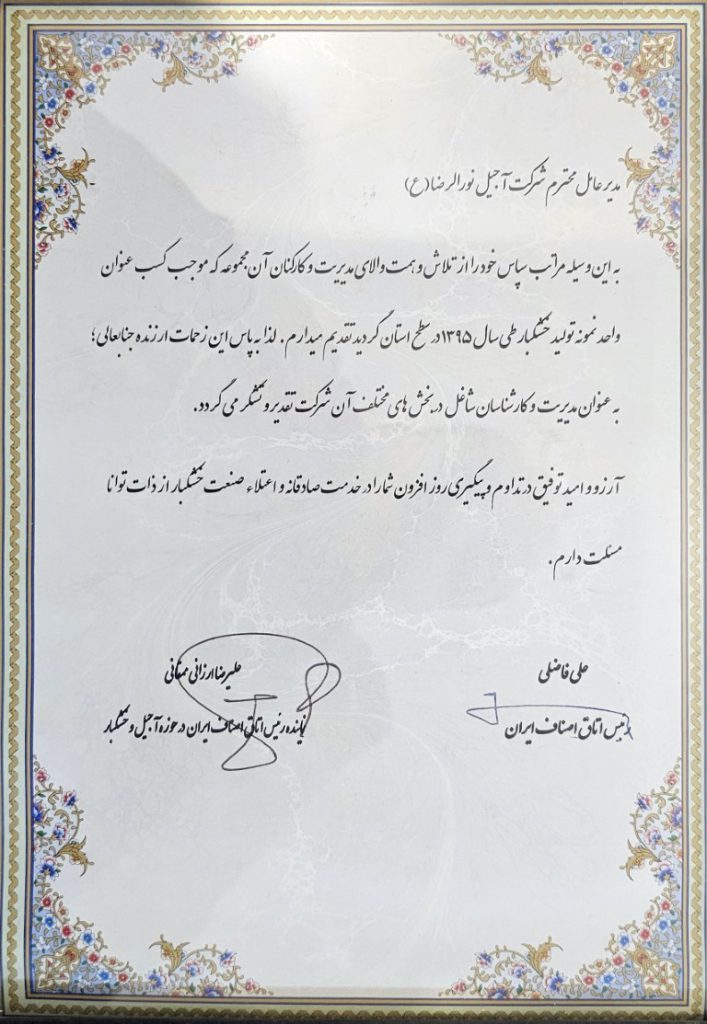 مدیر عامل محترم شرکت آجیل نورالرضا (ع)
به این وسیله مراتب سپاس خود را از تلاش و همت والای مدیریت و کارکنان آن مجموعه که موجب کسب عنوان
واحد نمونه تولید خشکبار طی سال ۱۳۹۵ در سطح استان گردید تقدیم میدارم. لذا به پاس این زحمات ارزنده جنابعالی؛
به عنوان مدیریت و کارشناسان شاغل در بخش های مختلف آن شرکت تقدیر و تشکر می گردد.
آرزو و امید توفیق در تداوم و پیگیری روز افزون شما را در خدمت صادقانه و اعتلاء صنعت خشکبار از ذات توانا
مسئلت دارم.
علی فاضلی
رئیس اتاق اصناف ایران
علیرضا ارزانی ممقانی
نماینده رئیس اتاق اصناف ایران در حوزه آجیل و خشکبار